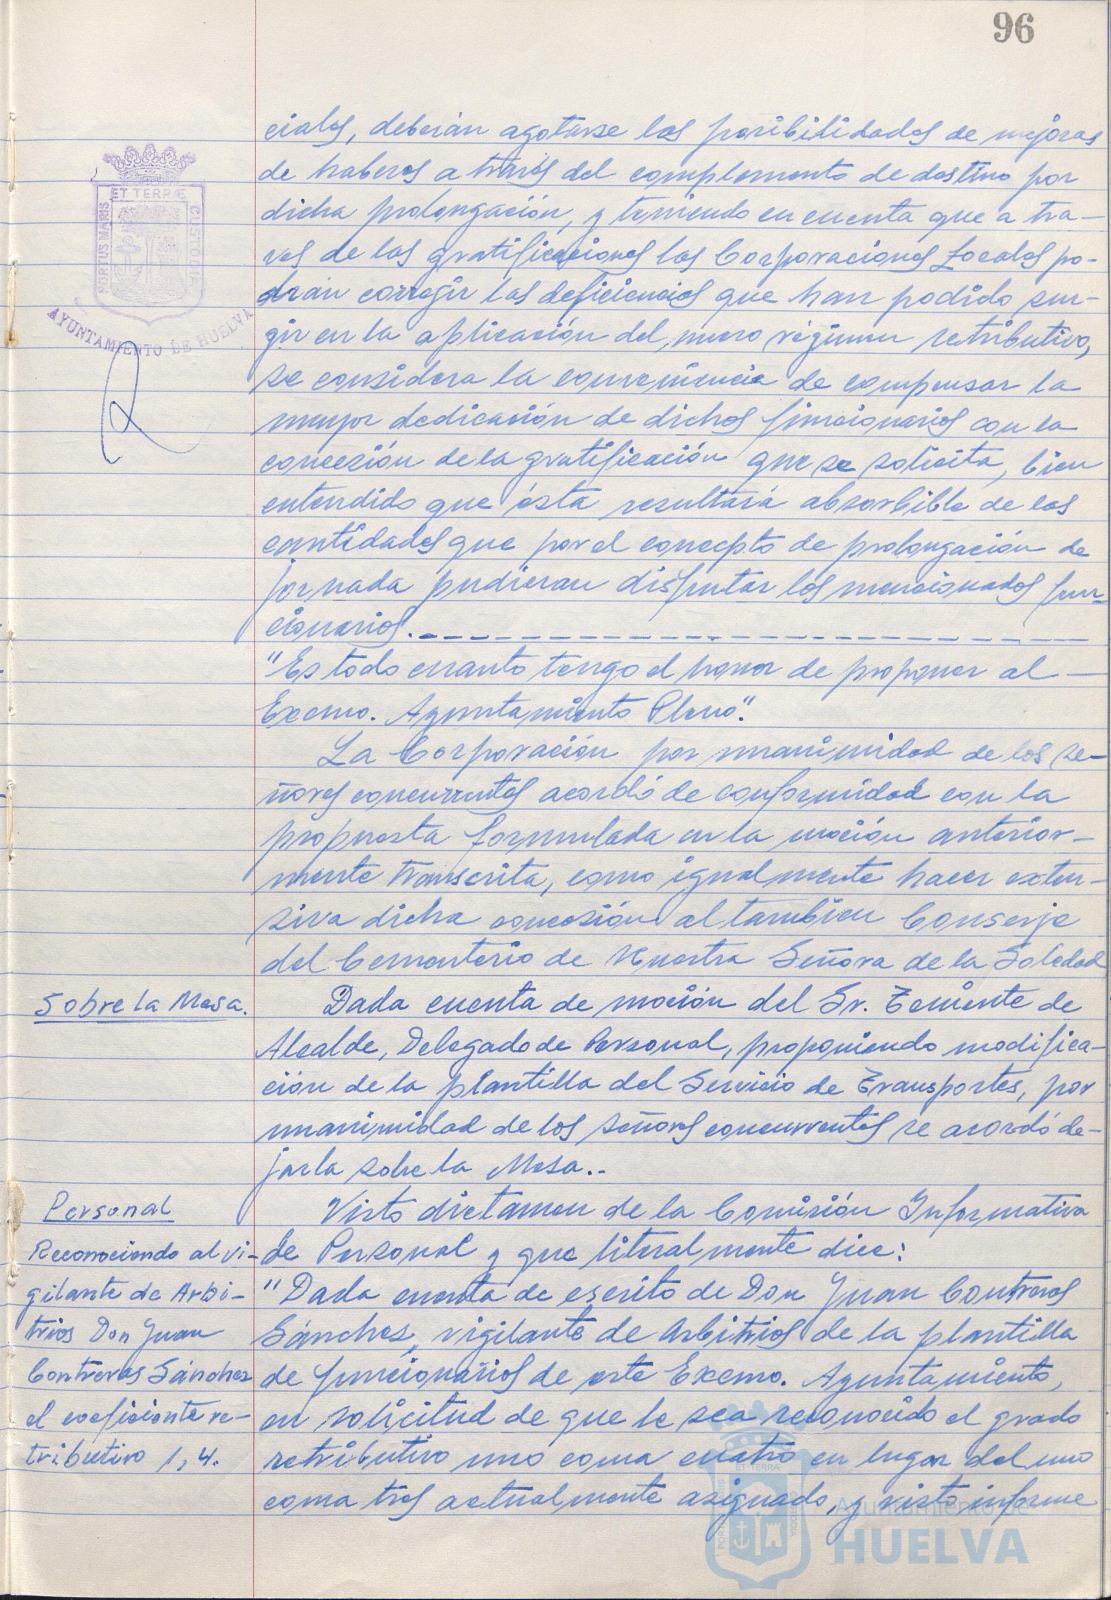 96
ciales, deberán agotarse las posibilidades de mejoras
de haberes a través del complemento de destino por
dicha prolongación, y teniendo en cuenta que a tra-
vés de las gratificaciones las Corporaciones Locales po-
drán corregir las deficiencias que han podido sur-
gir en la aplicación del nuevo régimen retributivo,
se considera la conveniencia de compensar la
mayor dedicación de dichos funcionarios con la
concesión de la gratificación que se solicita, bien
entendido que ésta resultará absorbible de las
cantidades que por el concepto de prolongación de
jornada pudieran disfrutar los mencionados fun-
cionarios.
"Es todo cuanto tengo el honor de proponer al
Excmo. Ayuntamiento Pleno".
La Corporación por unanimidad de los se-
ñores concurrentes acordó de conformidad con la
propuesta formulada en la moción anterior-
mente transcrita, como igualmente hacer exten-
siva dicha concesión al tambien Conserje
del Cementerio de Nuestra Señora de la Soledad
Sobre la Mesa.
Dada cuenta de moción del Sr. Teniente de
Alcalde, Delegado de Personal, proponiendo modifica-
ción de la plantilla del Servicio de Transportes, por
unanimidad de los señores concurrentes se acordó de-
jarla sobre la Mesa..
Personal
Reconociendo al vi-
gilante de Arbi-
trios Don Juan
Contreras Sánchez
el coeficiente re-
tributivo 1,4.
Visto dictamen de la Comisión Informativa
de Personal y que literalmente dice:
"Dada cuenta de escrito de Don Juan Contreras
Sánchez, vigilante de Arbitrios de la plantilla
de funcionarios de este Excmo. Ayuntamiento,
en solicitud de que le sea reconocido el grado
retributivo uno coma cuatro en lugar del uno
coma tres actualmente asignado, y visto informe
PORTUS MARIS
ET TERRÆ
CUSTODIA
AYUNTAMIENTO DE HUELVA
Ayuntamiento de
HUELVA